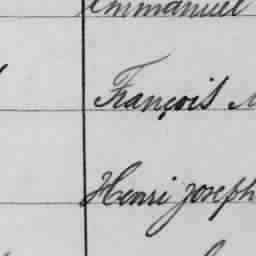 Emmanuel
François
Henri Joseph